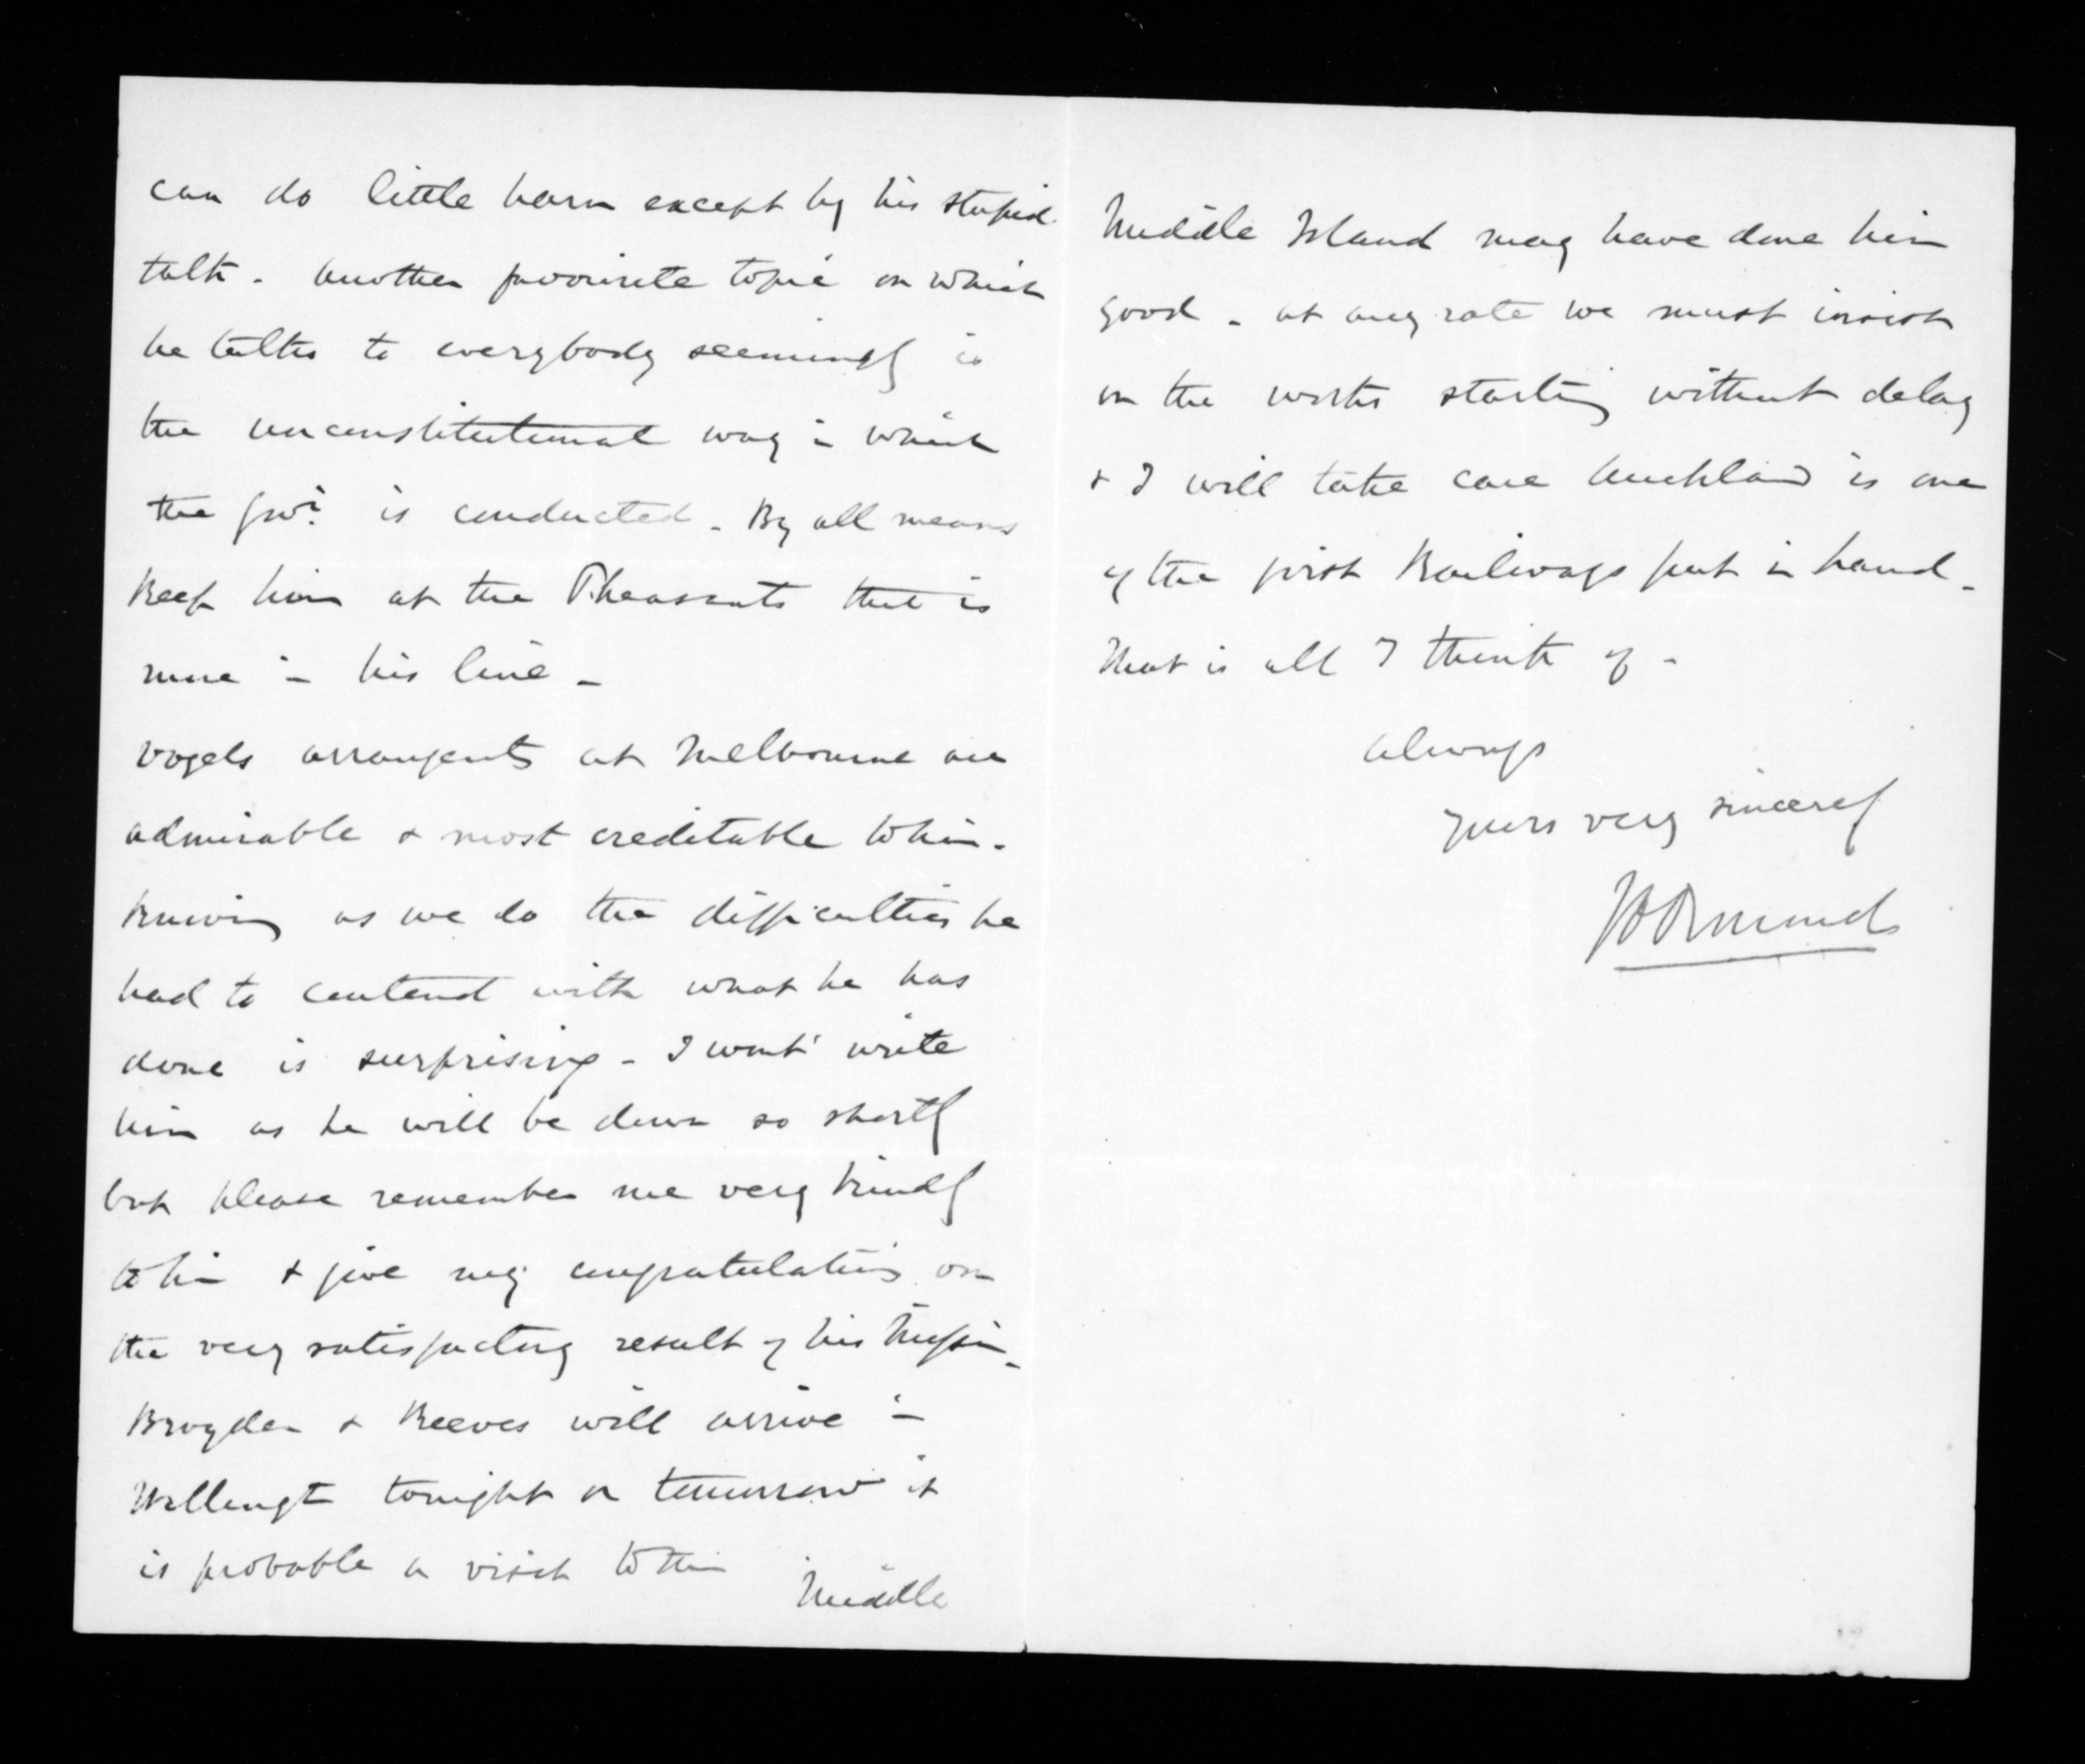 can do little harm except by his stupid
talk - Another favourite topic on which
he talks to everybody seemingly is
the unconstitutional way in which
the Govt. is conducted - By all means
keep him at the Pheasants that is
more in his line -
Vogels arrangents at Melbourne are
admirable & most creditable to him -
Knowing as we do the difficulties he
had to contend with what he has
done is surprising - I wont write
him as he will be down so shortly
but please remember me very kindly
to him & give my congratulations on
the very satisfactory result of his Mission -
Brogden & Reeves will arrive in
Wellingt tonight or tomorrow it
is probable a visit to the
Middle
Middle Island may have done him
good - at any rate we must insist
on the works starting without delay
& I will take care Auckland is one
of the first Railways put in hand -
That is all I think of -
Always
yours very sincerely
JD Ormond